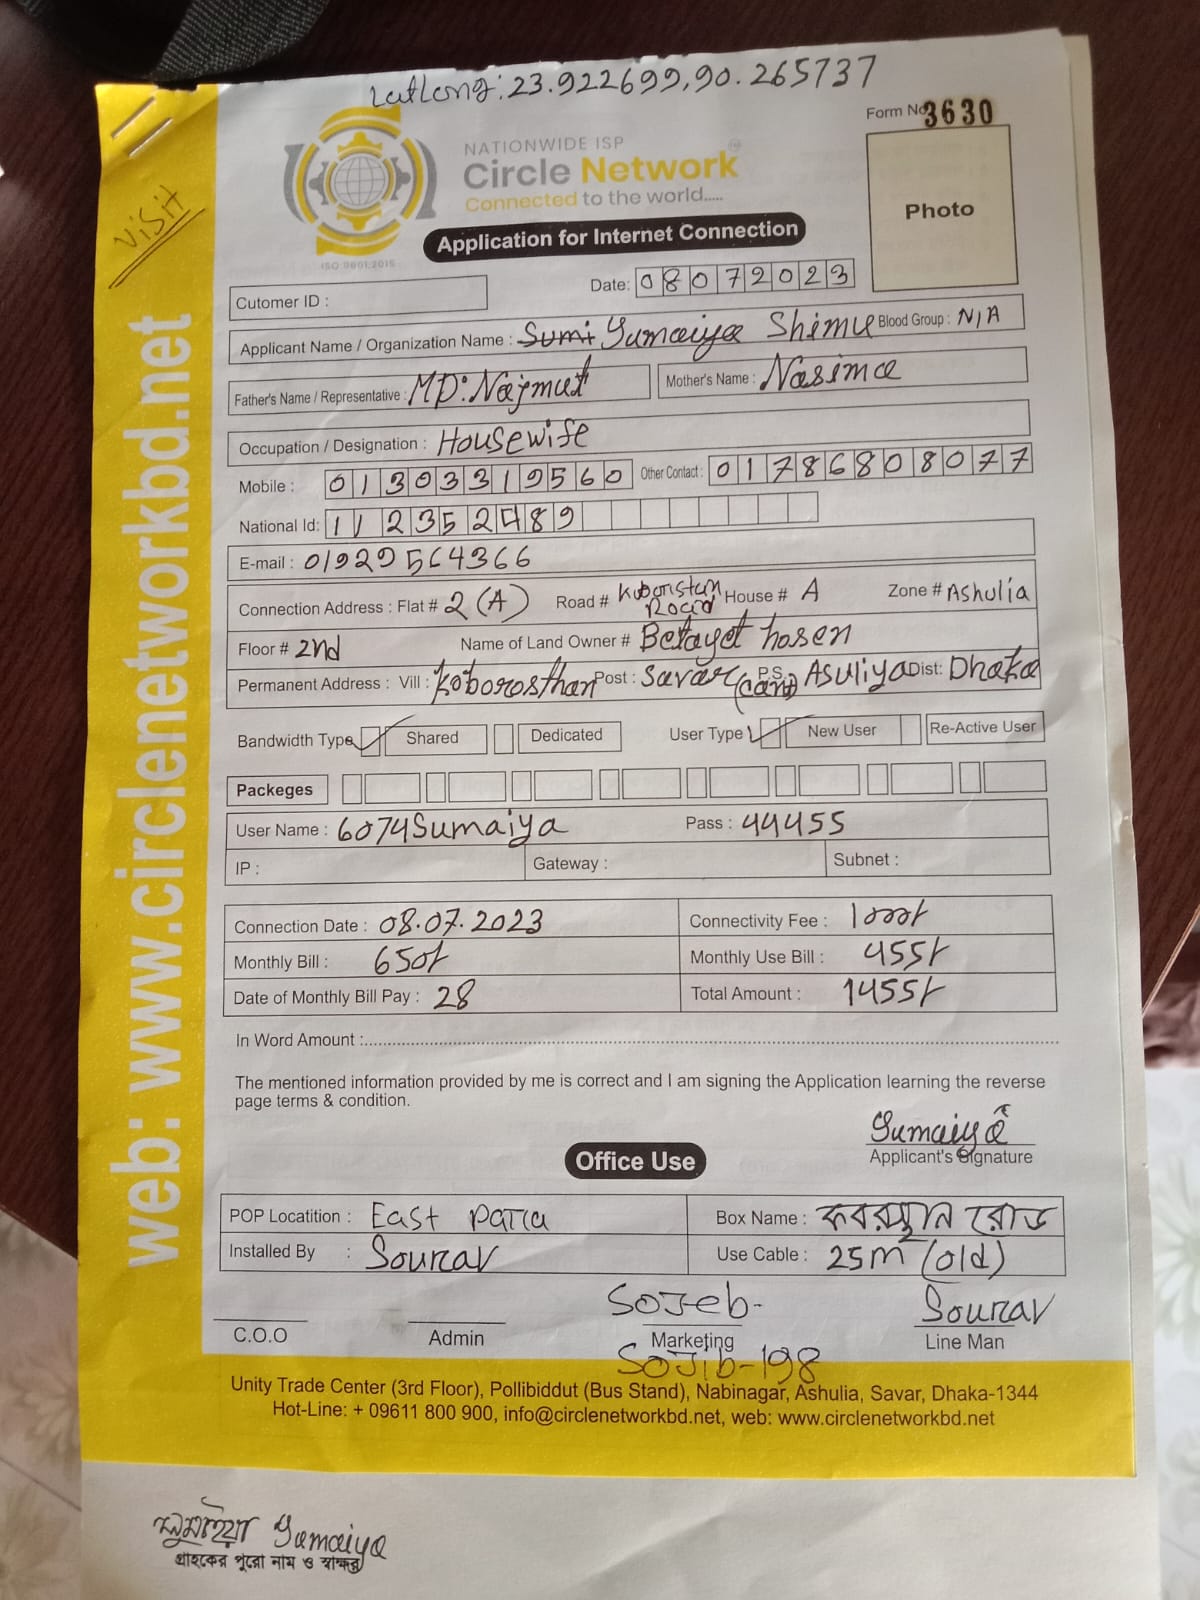 LatLong: 23.922699,90.265737
Form No 3630
NATIONWIDE ISP
Circle Network
Connected to the world.....
ISO 9001:2015
Photo
visit
Application for Internet Connection
Cutomer ID :
Date: 08072023
Applicant Name / Organization Name : Sumaiya Shimu Blood Group : N/A
Father's Name / Representative : MD: Najmul Mother's Name : Nasima
Occupation / Designation : Housewife
Mobile : 01303319560 Other Contact : 01786808077
National Id: 112352489
E-mail : 01929564366
Connection Address : Flat # 2 (A) Road # Koboristan Road House # A Zone # Ashulia
Floor # 2nd Name of Land Owner # Belayet hosen
Permanent Address : Vill : Koborosthan Post : Savar (cant) P.S. Asuliya Dist: Dhaka
Bandwidth Type Shared Dedicated User Type New User Re-Active User
Packeges
User Name : 6074Sumaiya Pass : 44455
IP : Gateway : Subnet :
Connection Date : 08.07.2023 Connectivity Fee : 1000/-
Monthly Bill : 650/- Monthly Use Bill : 455/-
Date of Monthly Bill Pay : 28 Total Amount : 1455/-
In Word Amount :
The mentioned information provided by me is correct and I am signing the Application learning the reverse
page terms & condition.
Sumaiya
Applicant's Signature
Office Use
POP Locatition : East Para Box Name : কবরস্থান রোড
Installed By : Sourav Use Cable : 25m (old)
Sojeb- Sourav
C.O.O Admin Marketing Line Man
Sojib-198
Unity Trade Center (3rd Floor), Pollibiddut (Bus Stand), Nabinagar, Ashulia, Savar, Dhaka-1344
Hot-Line: + 09611 800 900, info@circlenetworkbd.net, web: www.circlenetworkbd.net
web: www.circlenetworkbd.net
সুমাইয়া Sumaiya
গ্রাহকের পুরো নাম ও স্বাক্ষর